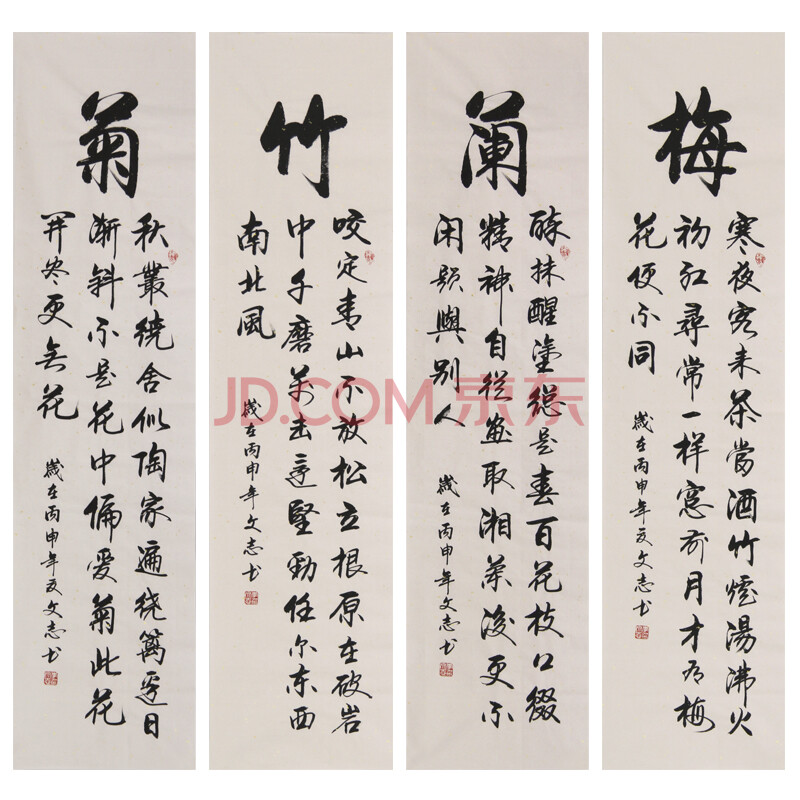 梅
寒夜客来茶當酒竹爐湯沸火
初紅尋常一樣窓前月才有梅
花便不同
歲在丙申年夏文志书
蘭
醉抹醒塗總是春百花枝口綴
精神自從畫取湘蘭後更不
闲題與別人
歲在丙申年文志书
竹
咬定青山不放松立根原在破岩
中千磨萬击還堅勁任尔东西
南北風
歲在丙申年文志书
菊
秋叢繞舍似陶家遍绕篱邊日
渐斜不是花中偏愛菊此花
開尽更無花
歲在丙申年夏文志书
JD.COM 京东